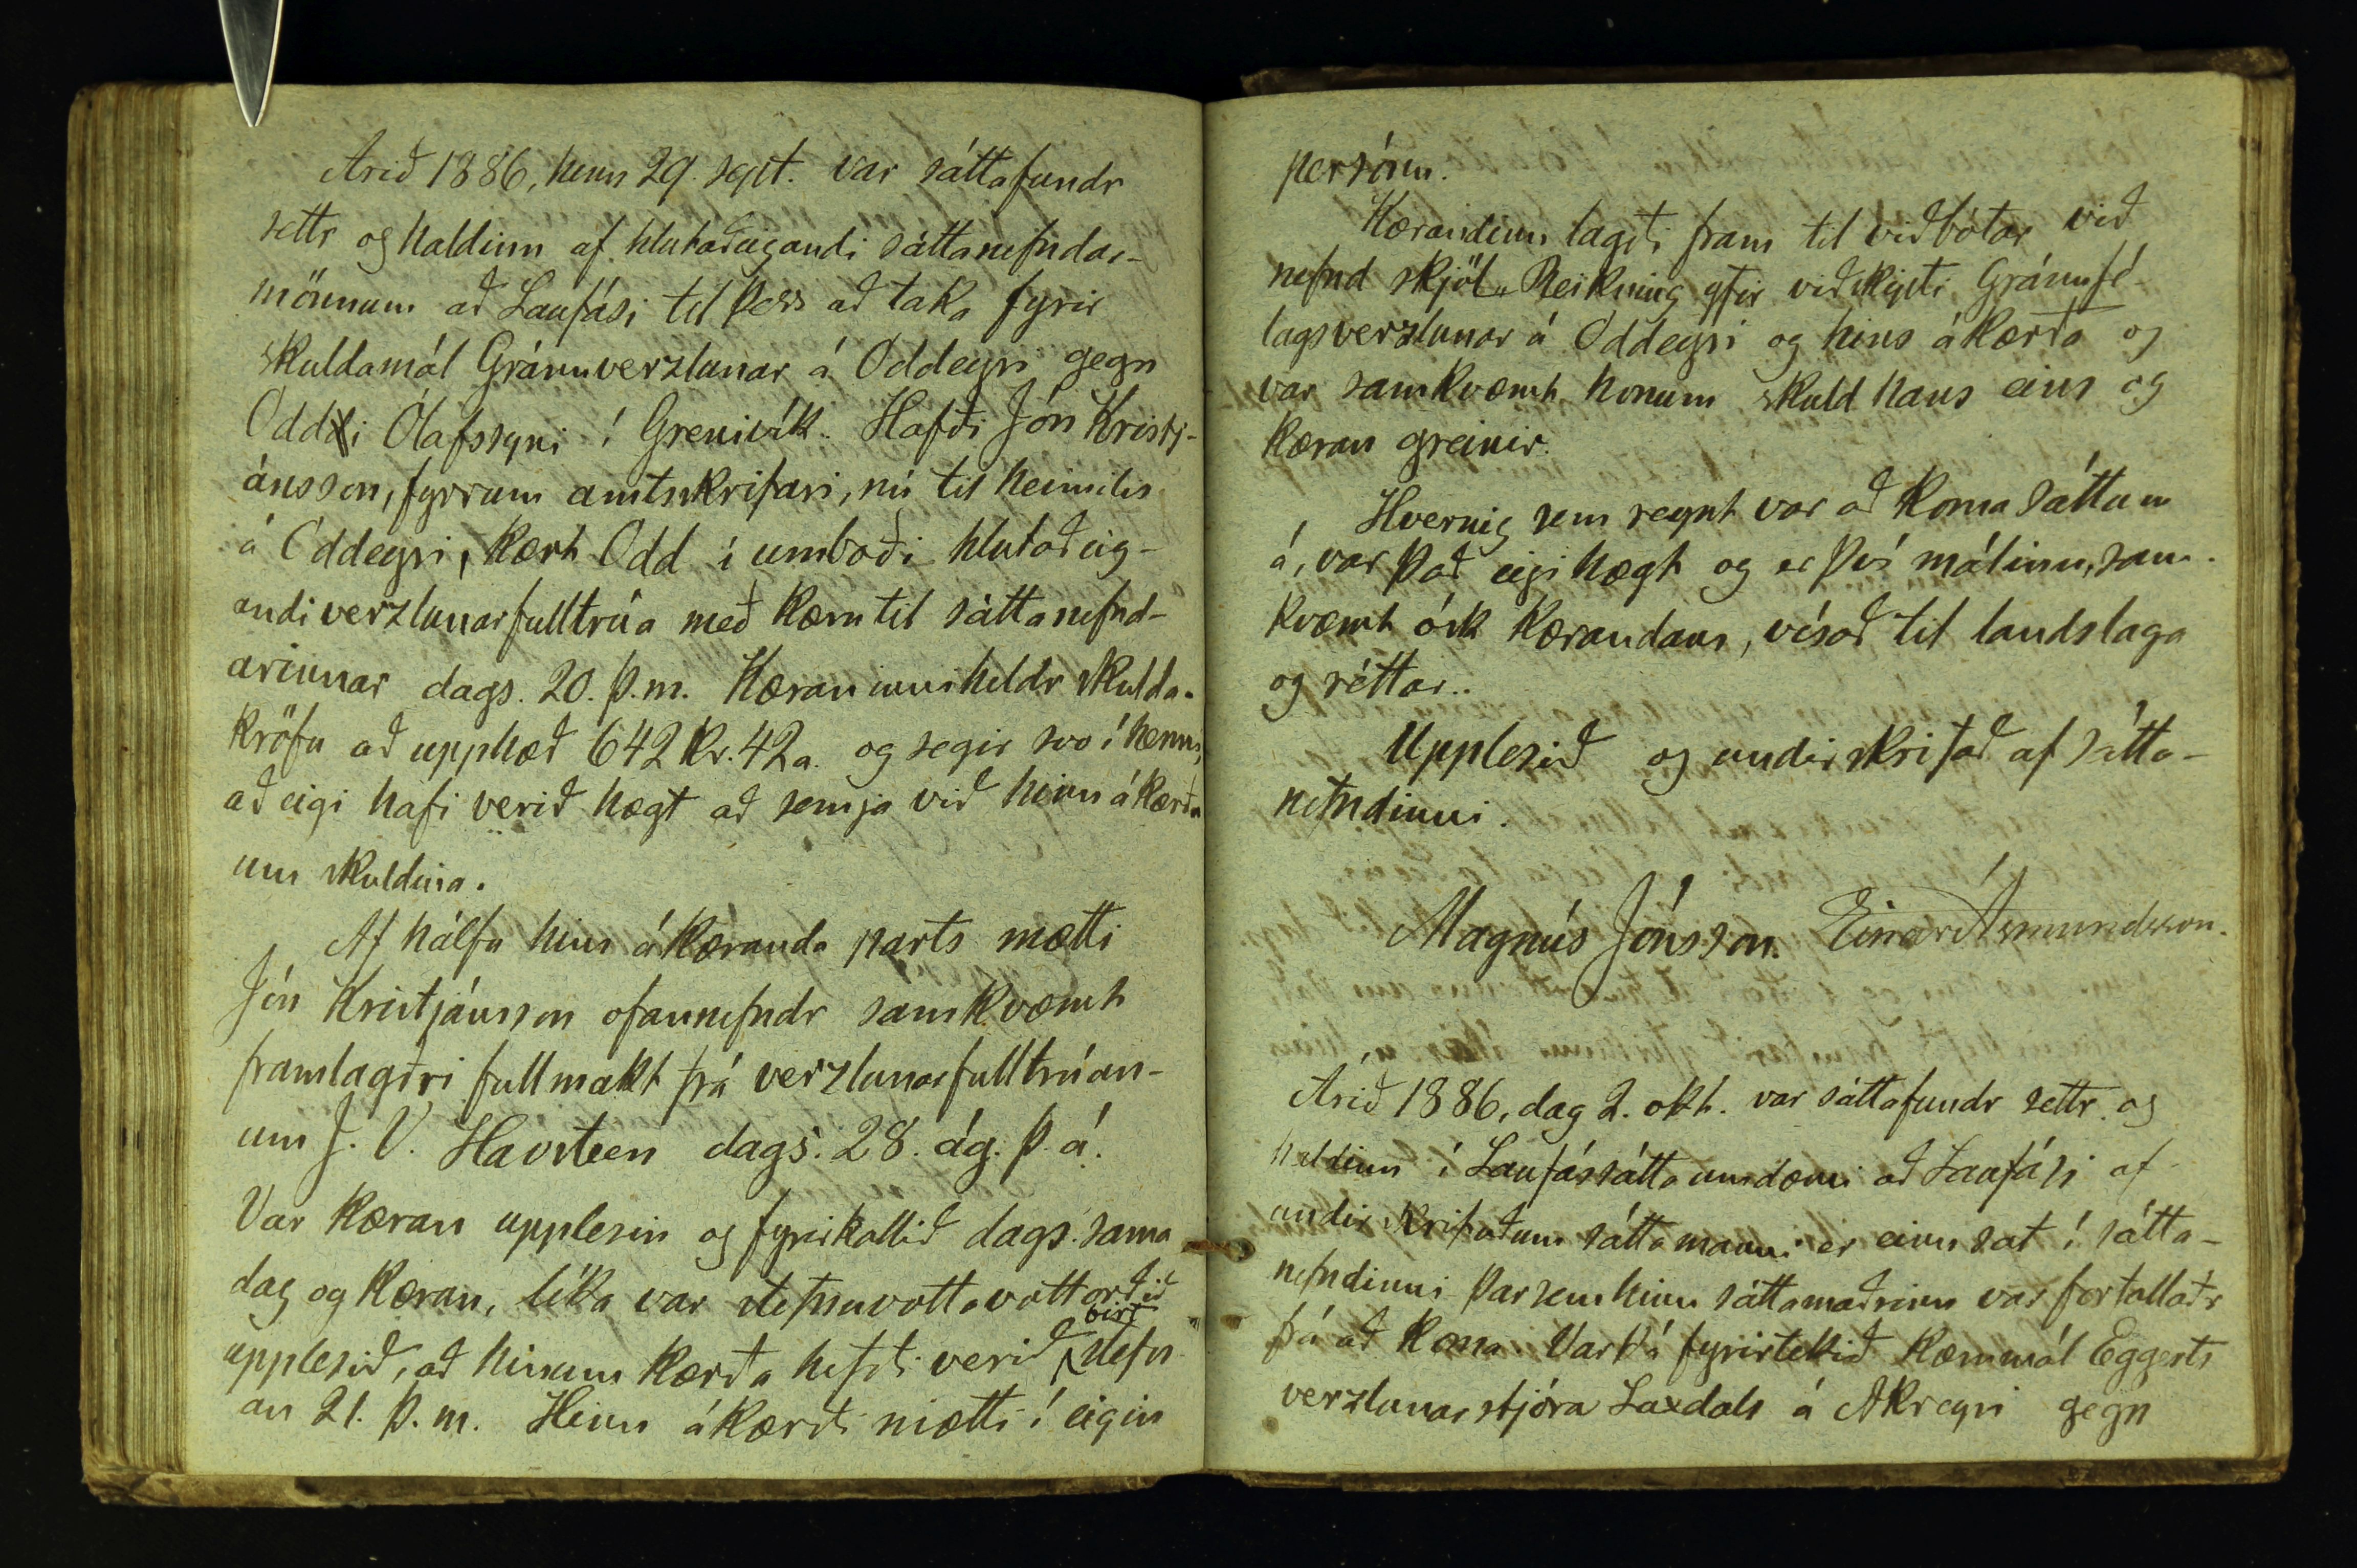 Árið 1886, hinn 29. sept. var sáttafundr
settr og haldinn af hlutaðeigandi sáttanefndar-
mönnum að Laufási til þess að taka fyrir
skuldamál Gránuverzlunar á Oddeyri gegn
Oddi Ólafssyni í Grenivík. Hafði Jón Kristj-
ánsson, fyrrum amtskrifari, nú til heimilis
á Oddeyri, kært Odd í umboði hlutaðeig-
andi verzlunarfulltrúa með kæru til sáttanefnd-
arinnar dags. 20. þ.m. Kæran inniheldr skulda-
kröfu að upphæð 642 kr. 42 a. og segir svo í henni,
að eigi hafi verið hægt að semja við hinn ákærða
um skuldina.
Af hálfu hins ákæranda parts mætti
Jón Kristjánsson ofannefndr samkvæmt
framlagðri fullmakt frá verzlunarfulltrúan-
um J. V. Havsteen dags. 28. ág. þ. á.
Var kæran upplesin og fyrirkallið dags. sama
dag og kæran, líka var stefnuvottavottorðið
upplesið, að hinum kærða hefði verið birt stefn
an 21. þ. m. Hinn ákærði mætti í eigin
persónu.
Kærandinn lagði fram til viðbótar við
nefnd skjöl Reikning yfir viðskipti Gránufé-
lagsverzlunar á Oddeyri og hins ákærða og
var samkvæmt honum skuld hans eins og
kæran greinir.
Hvernig sem reynt var að koma sáttum
á, var það eigi hægt og er því málinu, sam-
kvæmt ósk kærandans, vísað til landslaga
og réttar..
Upplesið og undirskrifað af sátta-
nefndinni.
Magnús Jónsson. Einar Ásmundsson.
Árið 1886, dag 2. okt. var sáttafundr settr og
haldinn í Laufássáttaumdæmi að Laufási af
undirskrifuðum sáttamanni er einn sat í sátta-
nefndinni þar sem hinn sáttamaðrinn var forfallaðr
frá að koma. Var þá fyrirtekið kærumál Eggerts
verzlunarstjóra Laxdals á Akreyri gegn